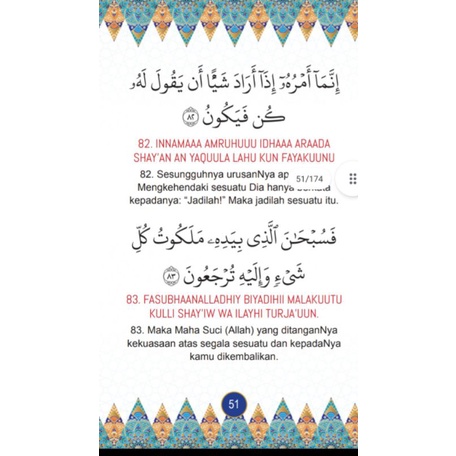 إِنَّمَآ أَمْرُهُۥٓ إِذَآ أَرَادَ شَيْـًٔا أَن يَقُولَ لَهُۥ
كُن فَيَكُونُ ٨٢
82. INNAMAAA AMRUHUUU IDHAAA ARAADA
SHAY'AN AN YAQUULA LAHU KUN FAYAKUUNU
82. Sesungguhnya urusanNya ap
51/174
Mengkehendaki sesuatu Dia hanya
kepadanya: “Jadilah!” Maka jadilah sesuatu itu.
فَسُبْحَـٰنَ ٱلَّذِى بِيَدِهِۦ مَلَكُوتُ كُلِّ
شَىْءٍ وَإِلَيْهِ تُرْجَعُونَ ٨٣
83. FASUBHAANALLADHIY BIYADIHII MALAKUUTU
KULLI SHAY'IW WA ILAYHI TURJA'UUN.
83. Maka Maha Suci (Allah) yang ditanganNya
kekuasaan atas segala sesuatu dan kepadaNya
kamu dikembalikan.
51